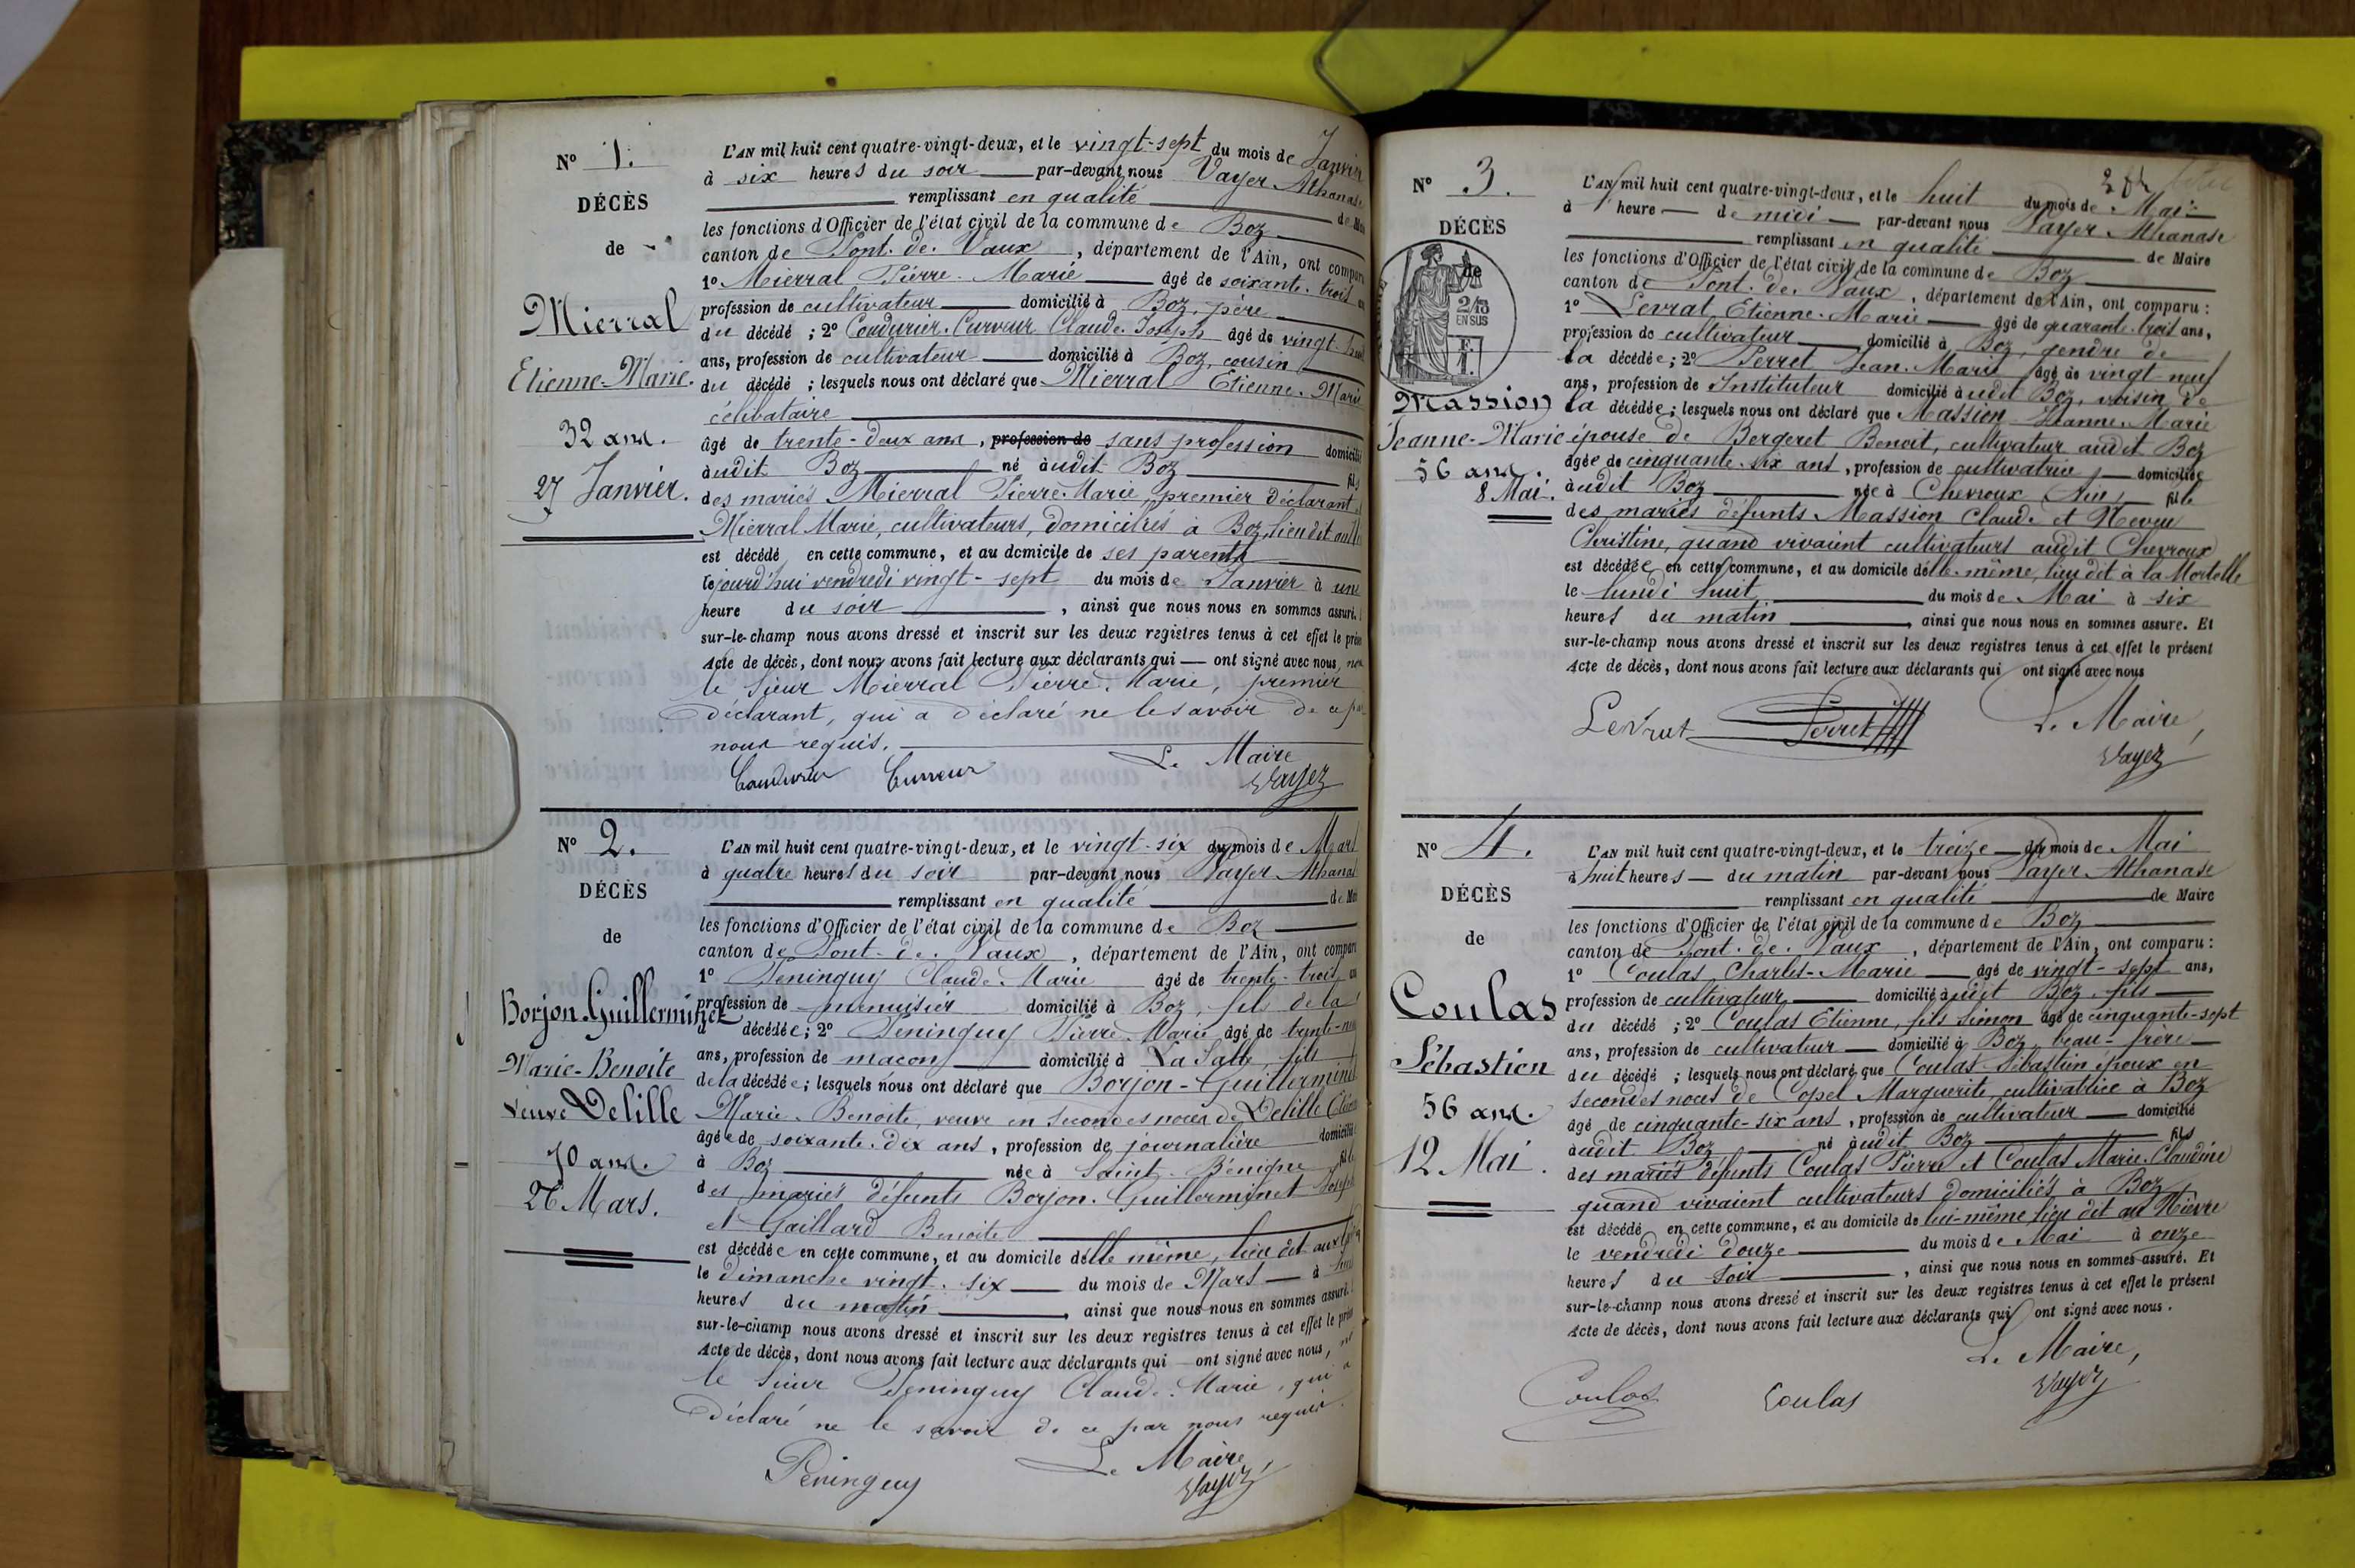 N° 1.
DÉCÈS
de
Mierral
Etienne-Marie.
32 ans.
27 Janvier.
L'AN mil huit cent quatre-vingt-deux, et le vingt-sept du mois de Janvier
à six heures du soir par-devant nous Vayer Athanase
remplissant en qualité de
les fonctions d'Officier de l'état civil de la commune de Boz
canton de Pont-de-Vaux, département de l'Ain, ont
1° Mierral Pierre-Marie âgé de soixante-trois
profession de cultivateur domicilié à Boz, père
du décédé ; 2° Coudurier-Curveur Claude-Joseph âgé de vingt
ans, profession de cultivateur domicilié à Boz, cousin
du décédé ; lesquels nous ont déclaré que Mierral Etienne-Marie
célibataire
âgé de trente-deux ans, profession de sans profession domicilié
àudit Boz né àudit Boz fils
des mariés Mierral Pierre-Marie, premier déclarant
Mierral Marie, cultivateurs, domiciliés à Boz, lieu dit
est décédé en cette commune, et au domicile de ses parents
lejourd'hui vendredi vingt-sept du mois de Janvier à une
heure du soir, ainsi que nous nous en sommes assuré.
sur-le-champ nous avons dressé et inscrit sur les deux registres tenus à cet effet le
Acte de décès, dont nous avons fait lecture aux déclarants qui ont signé avec nous,
le sieur Mierral Pierre-Marie, premier
déclarant, qui a déclaré ne le savoir de ce
nous requis.
Le Maire
Coudurier Curveur Vayer
N° 2.
DÉCÈS
de
Borjon-Guillerminet
Marie-Benoite
Veuve Delille
70 ans.
26 Mars.
L'AN mil huit cent quatre-vingt-deux, et le vingt-six du mois de Mars
à quatre heures du soir par-devant nous Vayer Athanase
remplissant en qualité de
les fonctions d'Officier de l'état civil de la commune de Boz
canton de Pont-de-Vaux, département de l'Ain, ont
1° Peninguy Claude-Marie âgé de trente-trois
profession de menuisier domicilié à Boz, fils de la
décédée ; 2° Peninguy Pierre-Marie âgé de
ans, profession de maçon domicilié à La Salle, fils
de la décédée ; lesquels nous ont déclaré que Borjon-Guillerminet
Marie-Benoite, veuve en secondes noces de Delille
âgée de soixante-dix ans, profession de journalière domiciliée
à Boz née à Saint-Bénigne fille
des mariés défunts Borjon-Guillerminet Joseph
et Gaillard Benoite
est décédée en cette commune, et au domicile d'elle même, lieu dit
le dimanche vingt-six du mois de Mars à
heures du matin, ainsi que nous nous en sommes assuré.
sur-le-champ nous avons dressé et inscrit sur les deux registres tenus à cet effet le
Acte de décès, dont nous avons fait lecture aux déclarants qui ont signé avec nous,
le sieur Peninguy Claude-Marie, qui a
déclaré ne le savoir de ce par nous requis.
Le Maire,
Peninguy Vayer
N° 3.
DÉCÈS
de
2/10
EN SUS
Massion
Jeanne-Marie
56 ans.
8 Mai.
L'AN mil huit cent quatre-vingt-deux, et le huit du mois de Mai
à l'heure de midi par-devant nous Vayer Athanase
remplissant en qualité de Maire
les fonctions d'Officier de l'état civil de la commune de Boz
canton de Pont-de-Vaux, département de l'Ain, ont comparu :
1° Levrat Etienne-Marie âgé de quarante-trois ans,
profession de cultivateur domicilié à Boz, gendre de
la décédée ; 2° Perret Jean-Marie âgé de vingt-neuf
ans, profession de Instituteur domicilié àudit Boz, voisin de
la décédée ; lesquels nous ont déclaré que Massion Jeanne-Marie
épouse de Bergeret Benoit, cultivateur audit Boz
âgée de cinquante-six ans, profession de cultivatrice domiciliée
àudit Boz née à Chevroux (Ain) fille
des mariés défunts Massion Claude et Neveu
Christine, quand vivaient cultivateurs audit Chevroux
est décédée en cette commune, et au domicile d'elle-même, lieu dit à la Mortelle
le lundi huit du mois de Mai à six
heures du matin, ainsi que nous nous en sommes assuré. Et
sur-le-champ nous avons dressé et inscrit sur les deux registres tenus à cet effet le présent
Acte de décès, dont nous avons fait lecture aux déclarants qui ont signé avec nous
Levrat Perret Le Maire,
Vayer
N° 4.
DÉCÈS
de
Coulas
Sébastien
56 ans.
12 Mai.
L'AN mil huit cent quatre-vingt-deux, et le treize du mois de Mai
à huit heures du matin par-devant nous Vayer Athanase
remplissant en qualité de Maire
les fonctions d'Officier de l'état civil de la commune de Boz
canton de Pont-de-Vaux, département de l'Ain, ont comparu :
1° Coulas Charles-Marie âgé de vingt-sept ans,
profession de cultivateur domicilié àudit Boz, fils
du décédé ; 2° Coulas Etienne, fils Simon âgé de cinquante-sept
ans, profession de cultivateur domicilié à Boz, beau-frère
du décédé ; lesquels nous ont déclaré que Coulas Sébastien époux en
secondes noces de Copel Marguerite, cultivatrice à Boz
âgé de cinquante-six ans, profession de cultivateur domicilié
àudit Boz né àudit Boz fils
des mariés défunts Coulas Pierre et Coulas Marie-Claudine
quand vivaient cultivateurs domiciliés à Boz
est décédé en cette commune, et au domicile de lui-même, lieu dit au Nièvre
le vendredi douze du mois de Mai à onze
heures du soir, ainsi que nous nous en sommes assuré. Et
sur-le-champ nous avons dressé et inscrit sur les deux registres tenus à cet effet le présent
Acte de décès, dont nous avons fait lecture aux déclarants qui ont signé avec nous.
Le Maire,
Coulas Coulas Vayer